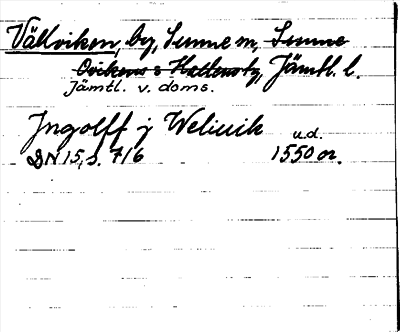 Vällviken, by, Sunne sn, Sunne
Ovikens o Hallens tg, Jämtl. l.
Jämtl. v. doms.
Jngolff j Weliuik u.d.
DN 15, s. 716 1550 or.